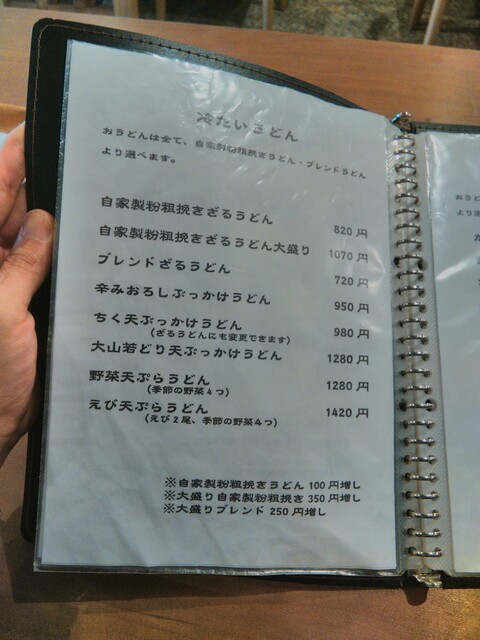 冷たいうどん
おうどんは全て、自家製粉粗挽きうどん・ブレンドうどん
より選べます。
自家製粉粗挽きざるうどん 820円
自家製粉粗挽きざるうどん大盛り 1070円
ブレンドざるうどん 720円
辛みおろしぶっかけうどん 950円
ちく天ぶっかけうどん 980円
(ざるうどんにも変更できます)
大山若どり天ぶっかけうどん 1280円
野菜天ぷらうどん 1280円
(季節の野菜4つ)
えび天ぷらうどん 1420円
(えび2尾、季節の野菜4つ)
※自家製粉粗挽きうどん 100円増し
※大盛り自家製粉粗挽き 350円増し
※大盛りブレンド 250円増し